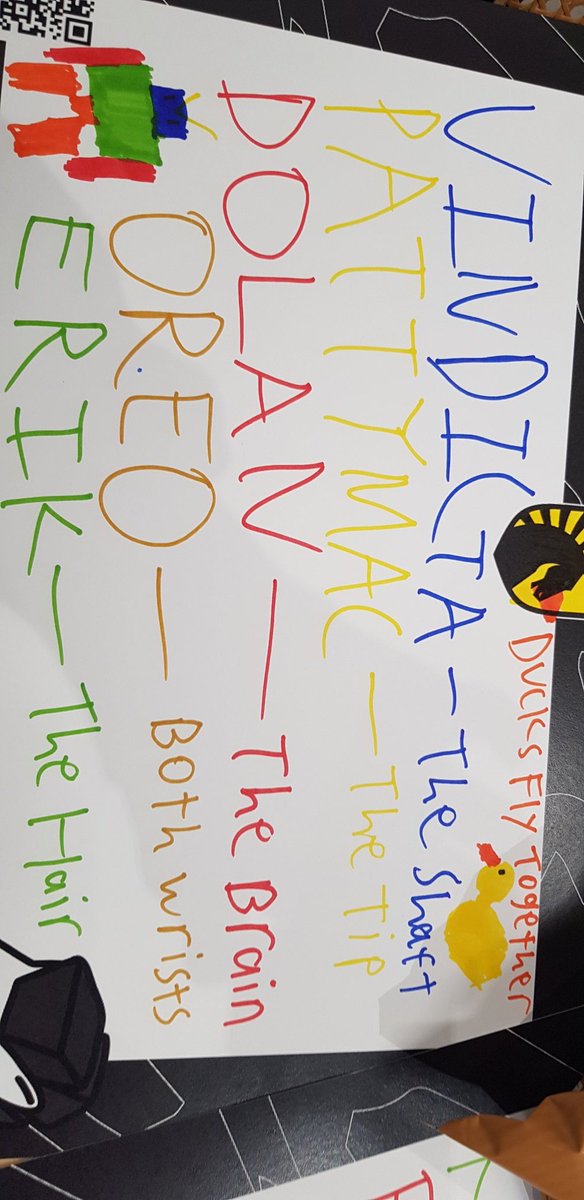 Ducks Fly Together
VINDICTA - The Shaft
PATTYMAC — The Tip
DOLAN — The Brain
OREO — Both wrists
ERIK — The Hair